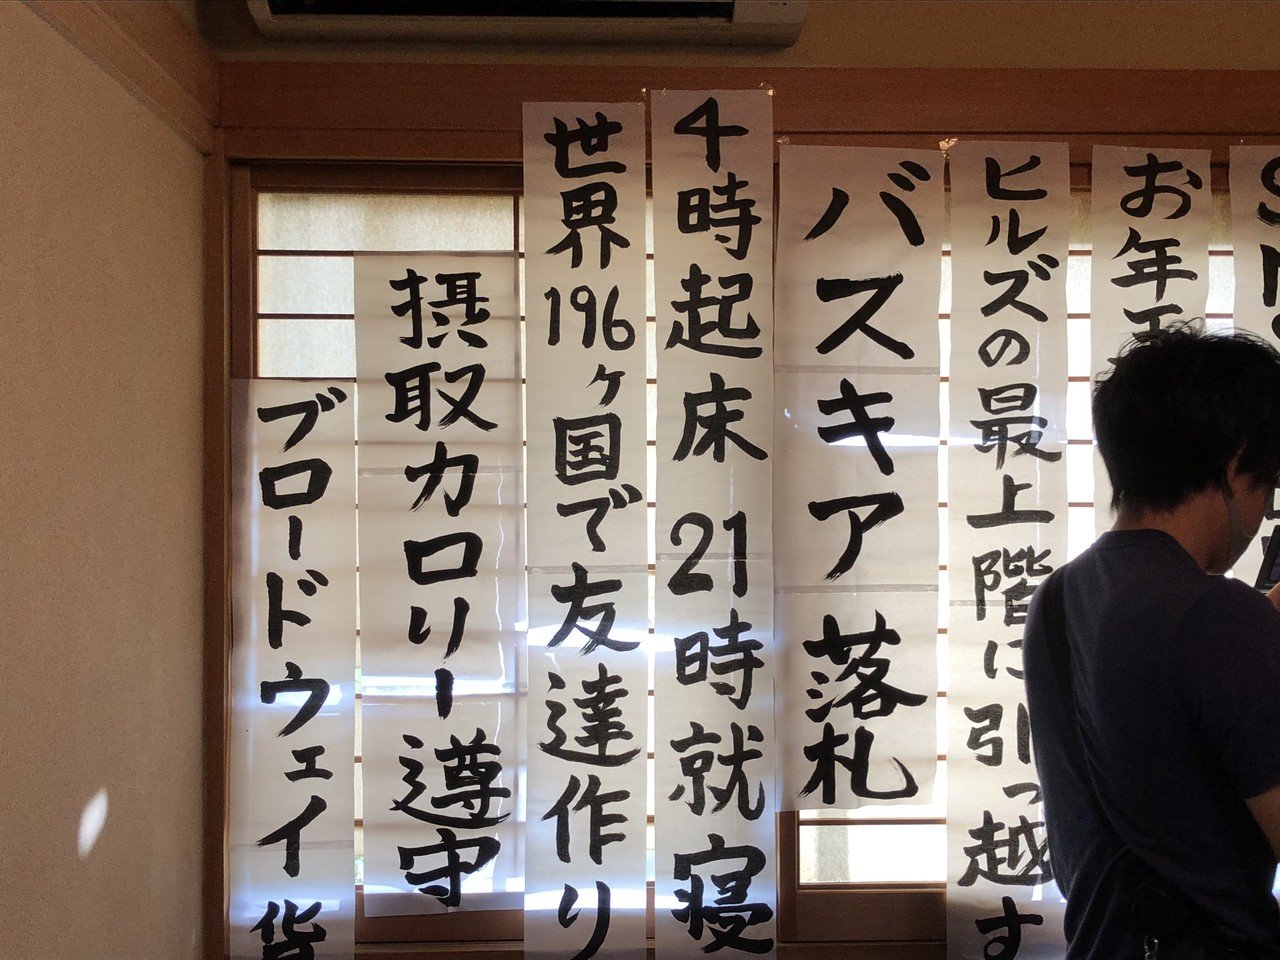 お年
ヒルズの最上階に引っ越す
バスキア落札
4時起床21時就寝
世界196ヶ国で友達作り
摂取カロリー遵守
ブロードウェイ